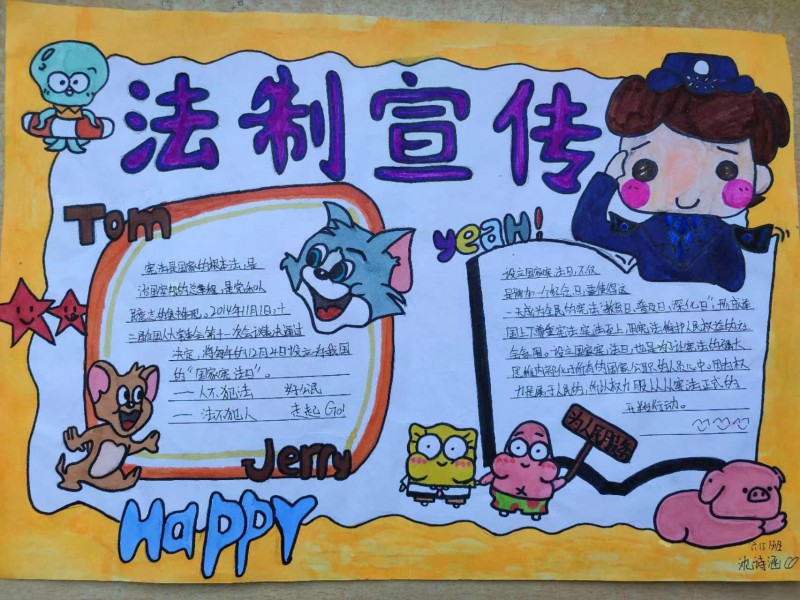 法制宣传
Tom
宪法是国家的根本法,是
治国安邦的总章程,是党和人
民意志的集中体现。2014年11月1日,十
二届全国人大常委会第十一次会议表决通过
决定,将每年的12月4日设立为我国
的“国家宪法日”。
——人不犯法 好公民
——法不犯人 走起 Go!
Jerry
Happy
yeah!
设立国家宪法日,不仅
是增加一个纪念日,更要使这
一天成为全民的宪法“教育日、普及日、深化日”,形成举
国上下尊重宪法、宪法至上、用宪法维护人民权益的社
会氛围。设立国家宪法日,也是为了让宪法的
内所有的国家公职人员心中。
力是属于人民的,所以权力服从宪法正式的
行动。
为人民服务
六(5)班
诗涵